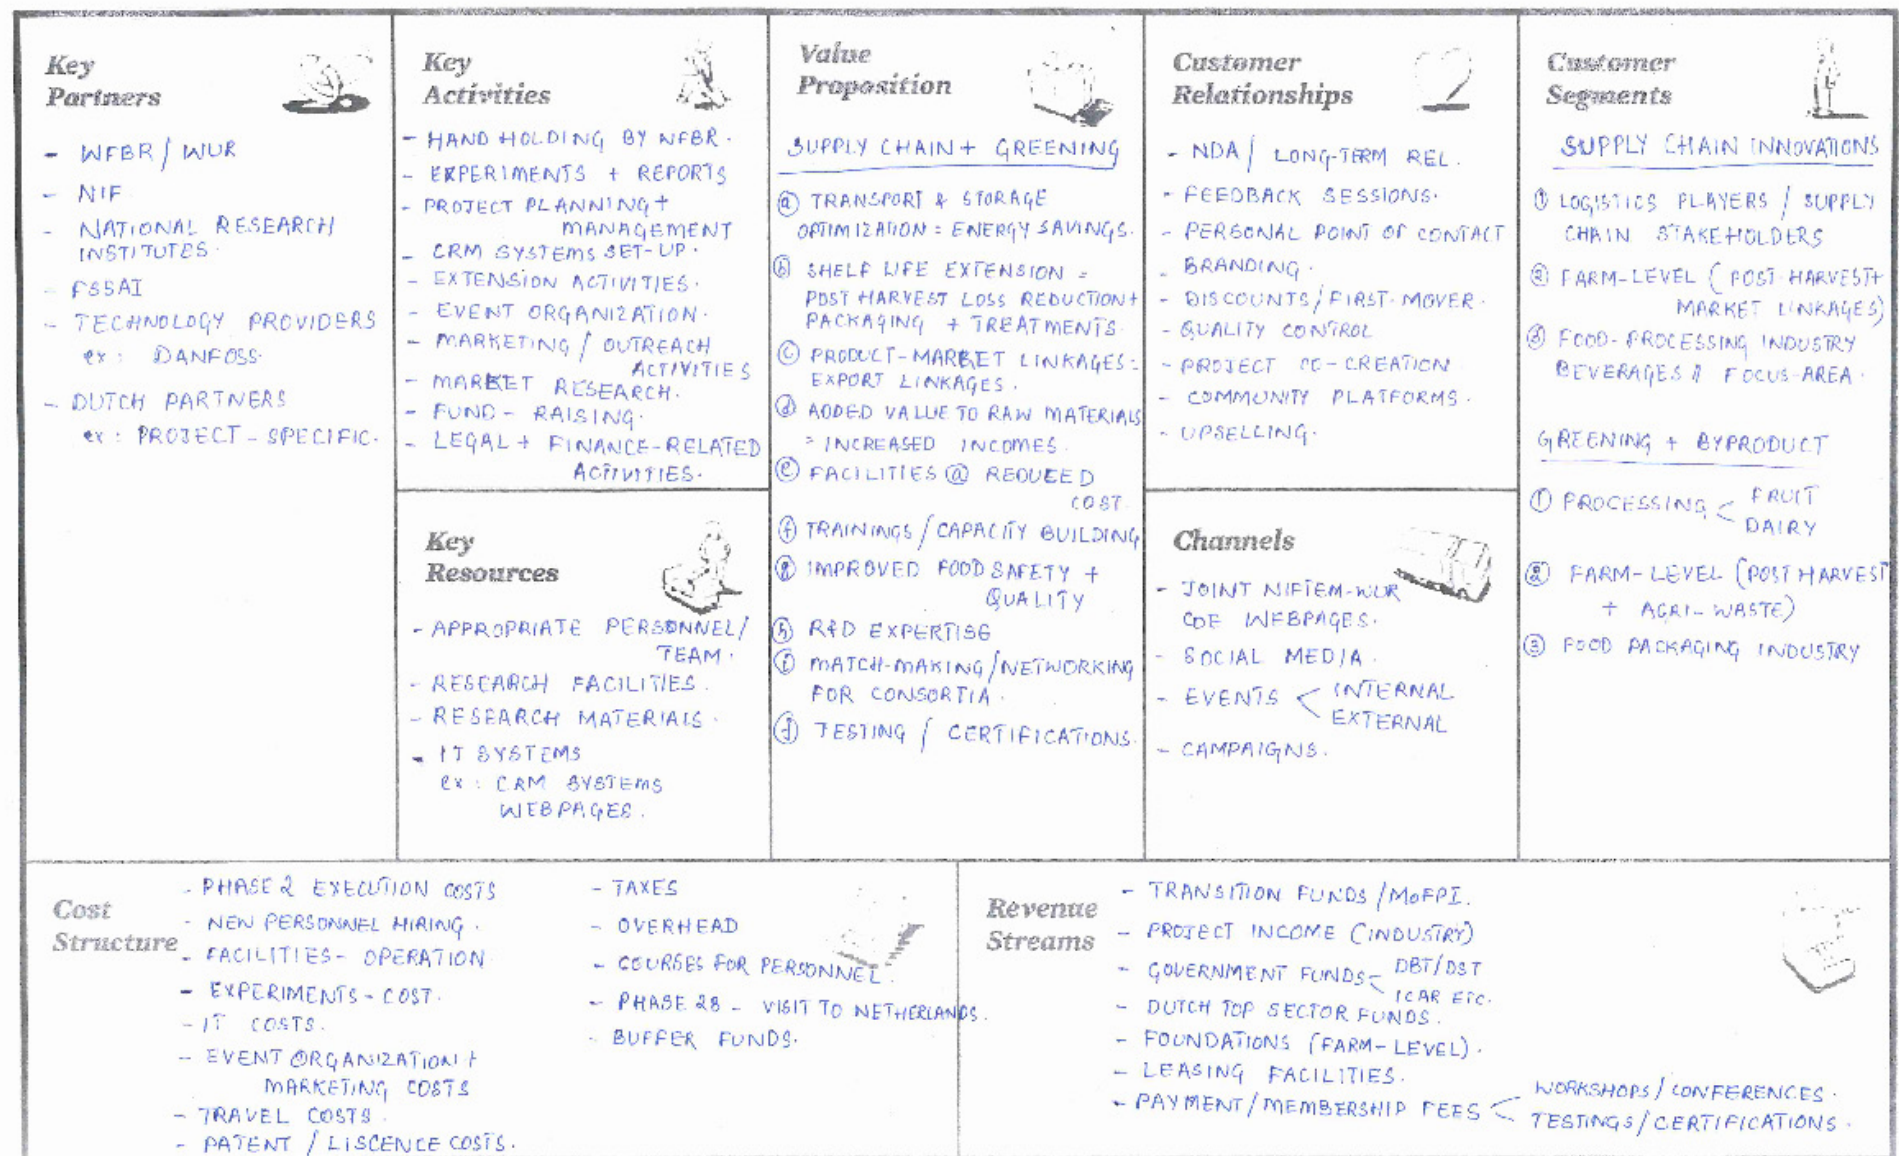 Key
Partners
- WFBR / WUR
- NIF
- NATIONAL RESEARCH
INSTITUTES.
- FSSAI
- TECHNOLOGY PROVIDERS
ex: DANFOSS.
- DUTCH PARTNERS
ex: PROJECT-SPECIFIC.
Key
Activities
- HAND HOLDING BY WFBR.
- EXPERIMENTS + REPORTS
- PROJECT PLANNING +
MANAGEMENT
- CRM SYSTEMS SET-UP.
- EXTENSION ACTIVITIES.
- EVENT ORGANIZATION.
- MARKETING / OUTREACH
ACTIVITIES
- MARKET RESEARCH.
- FUND-RAISING.
- LEGAL + FINANCE-RELATED
ACTIVITIES.
Key
Resources
- APPROPRIATE PERSONNEL/
TEAM.
- RESEARCH FACILITIES.
- RESEARCH MATERIALS.
- IT SYSTEMS
ex: CRM SYSTEMS
WEBPAGES.
Value
Proposition
SUPPLY CHAIN + GREENING
ⓐ TRANSPORT & STORAGE
OPTIMIZATION = ENERGY SAVINGS.
ⓑ SHELF LIFE EXTENSION =
POST HARVEST LOSS REDUCTION +
PACKAGING + TREATMENTS.
ⓒ PRODUCT-MARKET LINKAGES =
EXPORT LINKAGES.
ⓓ ADDED VALUE TO RAW MATERIALS
= INCREASED INCOMES.
ⓔ FACILITIES @ REDUCED
COST.
ⓕ TRAININGS / CAPACITY BUILDING
ⓖ IMPROVED FOOD SAFETY +
QUALITY
ⓗ R&D EXPERTISE
ⓘ MATCH-MAKING/NETWORKING
FOR CONSORTIA.
ⓙ TESTING / CERTIFICATIONS.
Customer
Relationships
- NDA / LONG-TERM REL.
- FEEDBACK SESSIONS.
- PERSONAL POINT OF CONTACT
- BRANDING.
- DISCOUNTS/FIRST-MOVER.
- QUALITY CONTROL
- PROJECT CO-CREATION
- COMMUNITY PLATFORMS.
- UPSELLING.
Channels
- JOINT NIFTEM-WUR
COE WEBPAGES.
- SOCIAL MEDIA.
- EVENTS < INTERNAL
EXTERNAL
- CAMPAIGNS.
Customer
Segments
SUPPLY CHAIN INNOVATIONS
① LOGISTICS PLAYERS / SUPPLY
CHAIN STAKEHOLDERS
② FARM-LEVEL (POST-HARVEST+
MARKET LINKAGES)
③ FOOD-PROCESSING INDUSTRY
BEVERAGES FOCUS-AREA.
GREENING + BYPRODUCT
① PROCESSING < FRUIT
DAIRY
② FARM-LEVEL (POST HARVEST
+ AGRI-WASTE)
③ FOOD PACKAGING INDUSTRY
Cost
Structure
- PHASE 2 EXECUTION COSTS
- NEW PERSONNEL HIRING.
- FACILITIES - OPERATION
- EXPERIMENTS - COST.
- IT COSTS.
- EVENT ORGANIZATION +
MARKETING COSTS
- TRAVEL COSTS.
- PATENT / LISCENCE COSTS.
- TAXES
- OVERHEAD
- COURSES FOR PERSONNEL.
- PHASE 2B - VISIT TO NETHERLANDS.
- BUFFER FUNDS.
Revenue
Streams
- TRANSITION FUNDS /MOFPI.
- PROJECT INCOME (INDUSTRY)
- GOVERNMENT FUNDS - DBT/DST
ICAR ETC.
- DUTCH TOP SECTOR FUNDS.
- FOUNDATIONS (FARM-LEVEL).
- LEASING FACILITIES.
- PAYMENT/MEMBERSHIP FEES < WORKSHOPS/CONFERENCES.
TESTINGS/CERTIFICATIONS.